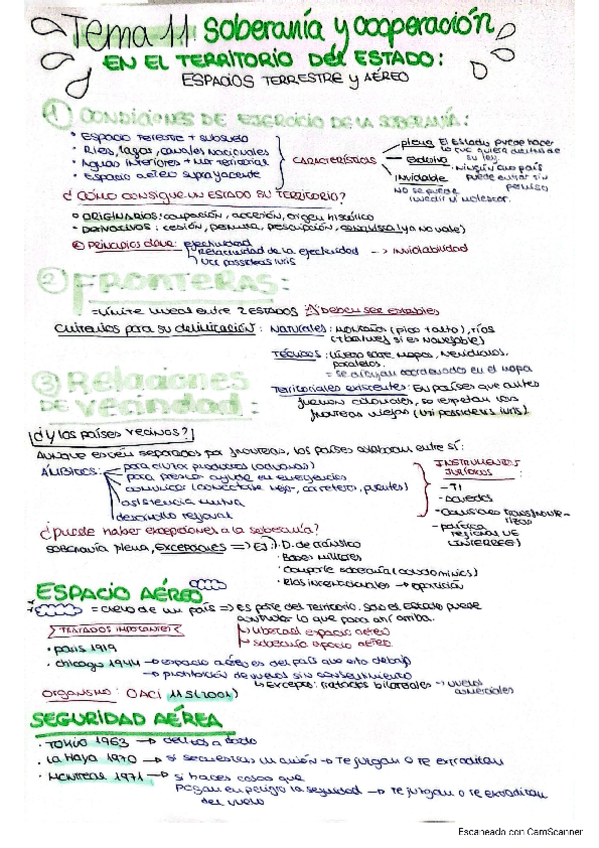 Tema 11: Soberanía y cooperación
EN EL TERRITORIO DEL ESTADO:
ESPACIOS TERRESTRE y AÉREO
① CONDICIONES DE EJERCICIO DE LA SOBERANÍA:
• Espacio terrestre + subsuelo
• Ríos, lagos, canales nacionales
• Aguas interiores + Mar territorial
• Espacio aéreo suprayacente
CARACTERÍSTICAS
plena El Estado puede hacer
lo que quiera dentro de
su ley.
exclusiva
• Ningún otro país
puede entrar sin
permiso
Inviolable
NO se puede
invadir ni molestar.
¿Cómo consigue un ESTADO SU TERRITORIO?
• ORIGINARIOS: ocupación, accesión, origen histórico
• DERIVATIVOS: cesión, permuta, prescripción, conquista (ya no vale)
Principios clave: efectividad
Relatividad de la efectividad -> Inviolabilidad
Uti possidetis iuris
② FRONTERAS:
= Límite lineal entre 2 ESTADOS ⚠ Deben ser estables
Criterios para su delimitación: Naturales: Montañas (pico + alto), ríos
(thalweg si es navegable)
Técnicos: Líneas sobre mapas, meridianos,
paralelos.
= se dibujan coordenadas en el mapa
Territoriales existentes: En países que antes
fueron colonias, se respetan las
fronteras viejas (Uti possidetis iuris)
③ Relaciones
DE vecindad:
¿y los países vecinos?
Aunque estén separados por fronteras, los países colaboran entre sí:
ÁMBITOS:
para cruzar productos (aduanas)
para prestar ayuda en emergencias
comunicar (conectarse mejor, carreteras, puentes)
asistencia mutua
desarrollo regional
INSTRUMENTOS
JURÍDICOS:
- TI
- Acuerdos
- Comisiones transfronterizas
- política
regional UE
(INTERREG)
¿puede haber excepciones a la soberanía?
soberanía plena, EXCEPCIONES => Ej: • D. de tránsito
• Bases militares
• Compartir soberanía (condominios)
• Ríos internacionales -> oposición
ESPACIO AÉREO
= cielo de un país => es parte del territorio. Solo el Estado puede
controlar lo que pasa ahí arriba.
TRATADOS IMPORTANTES
libertad espacio aéreo
soberanía espacio aéreo
• París 1919
• Chicago 1944 -> espacio aéreo es del país que está debajo
-> prohibición de vuelos sin consentimiento
-> Excepto: tratados bilaterales -> vuelos
comerciales
Organismo: OACI
SEGURIDAD AÉREA
• Tokio 1963 -> delitos a bordo
• La Haya 1970 -> si secuestras un avión -> Te juzgan o te extraditan
• Montreal 1971 -> si haces cosas que
pongan en peligro la seguridad -> te juzgan o te extraditan
del vuelo
Escaneado con CamScanner